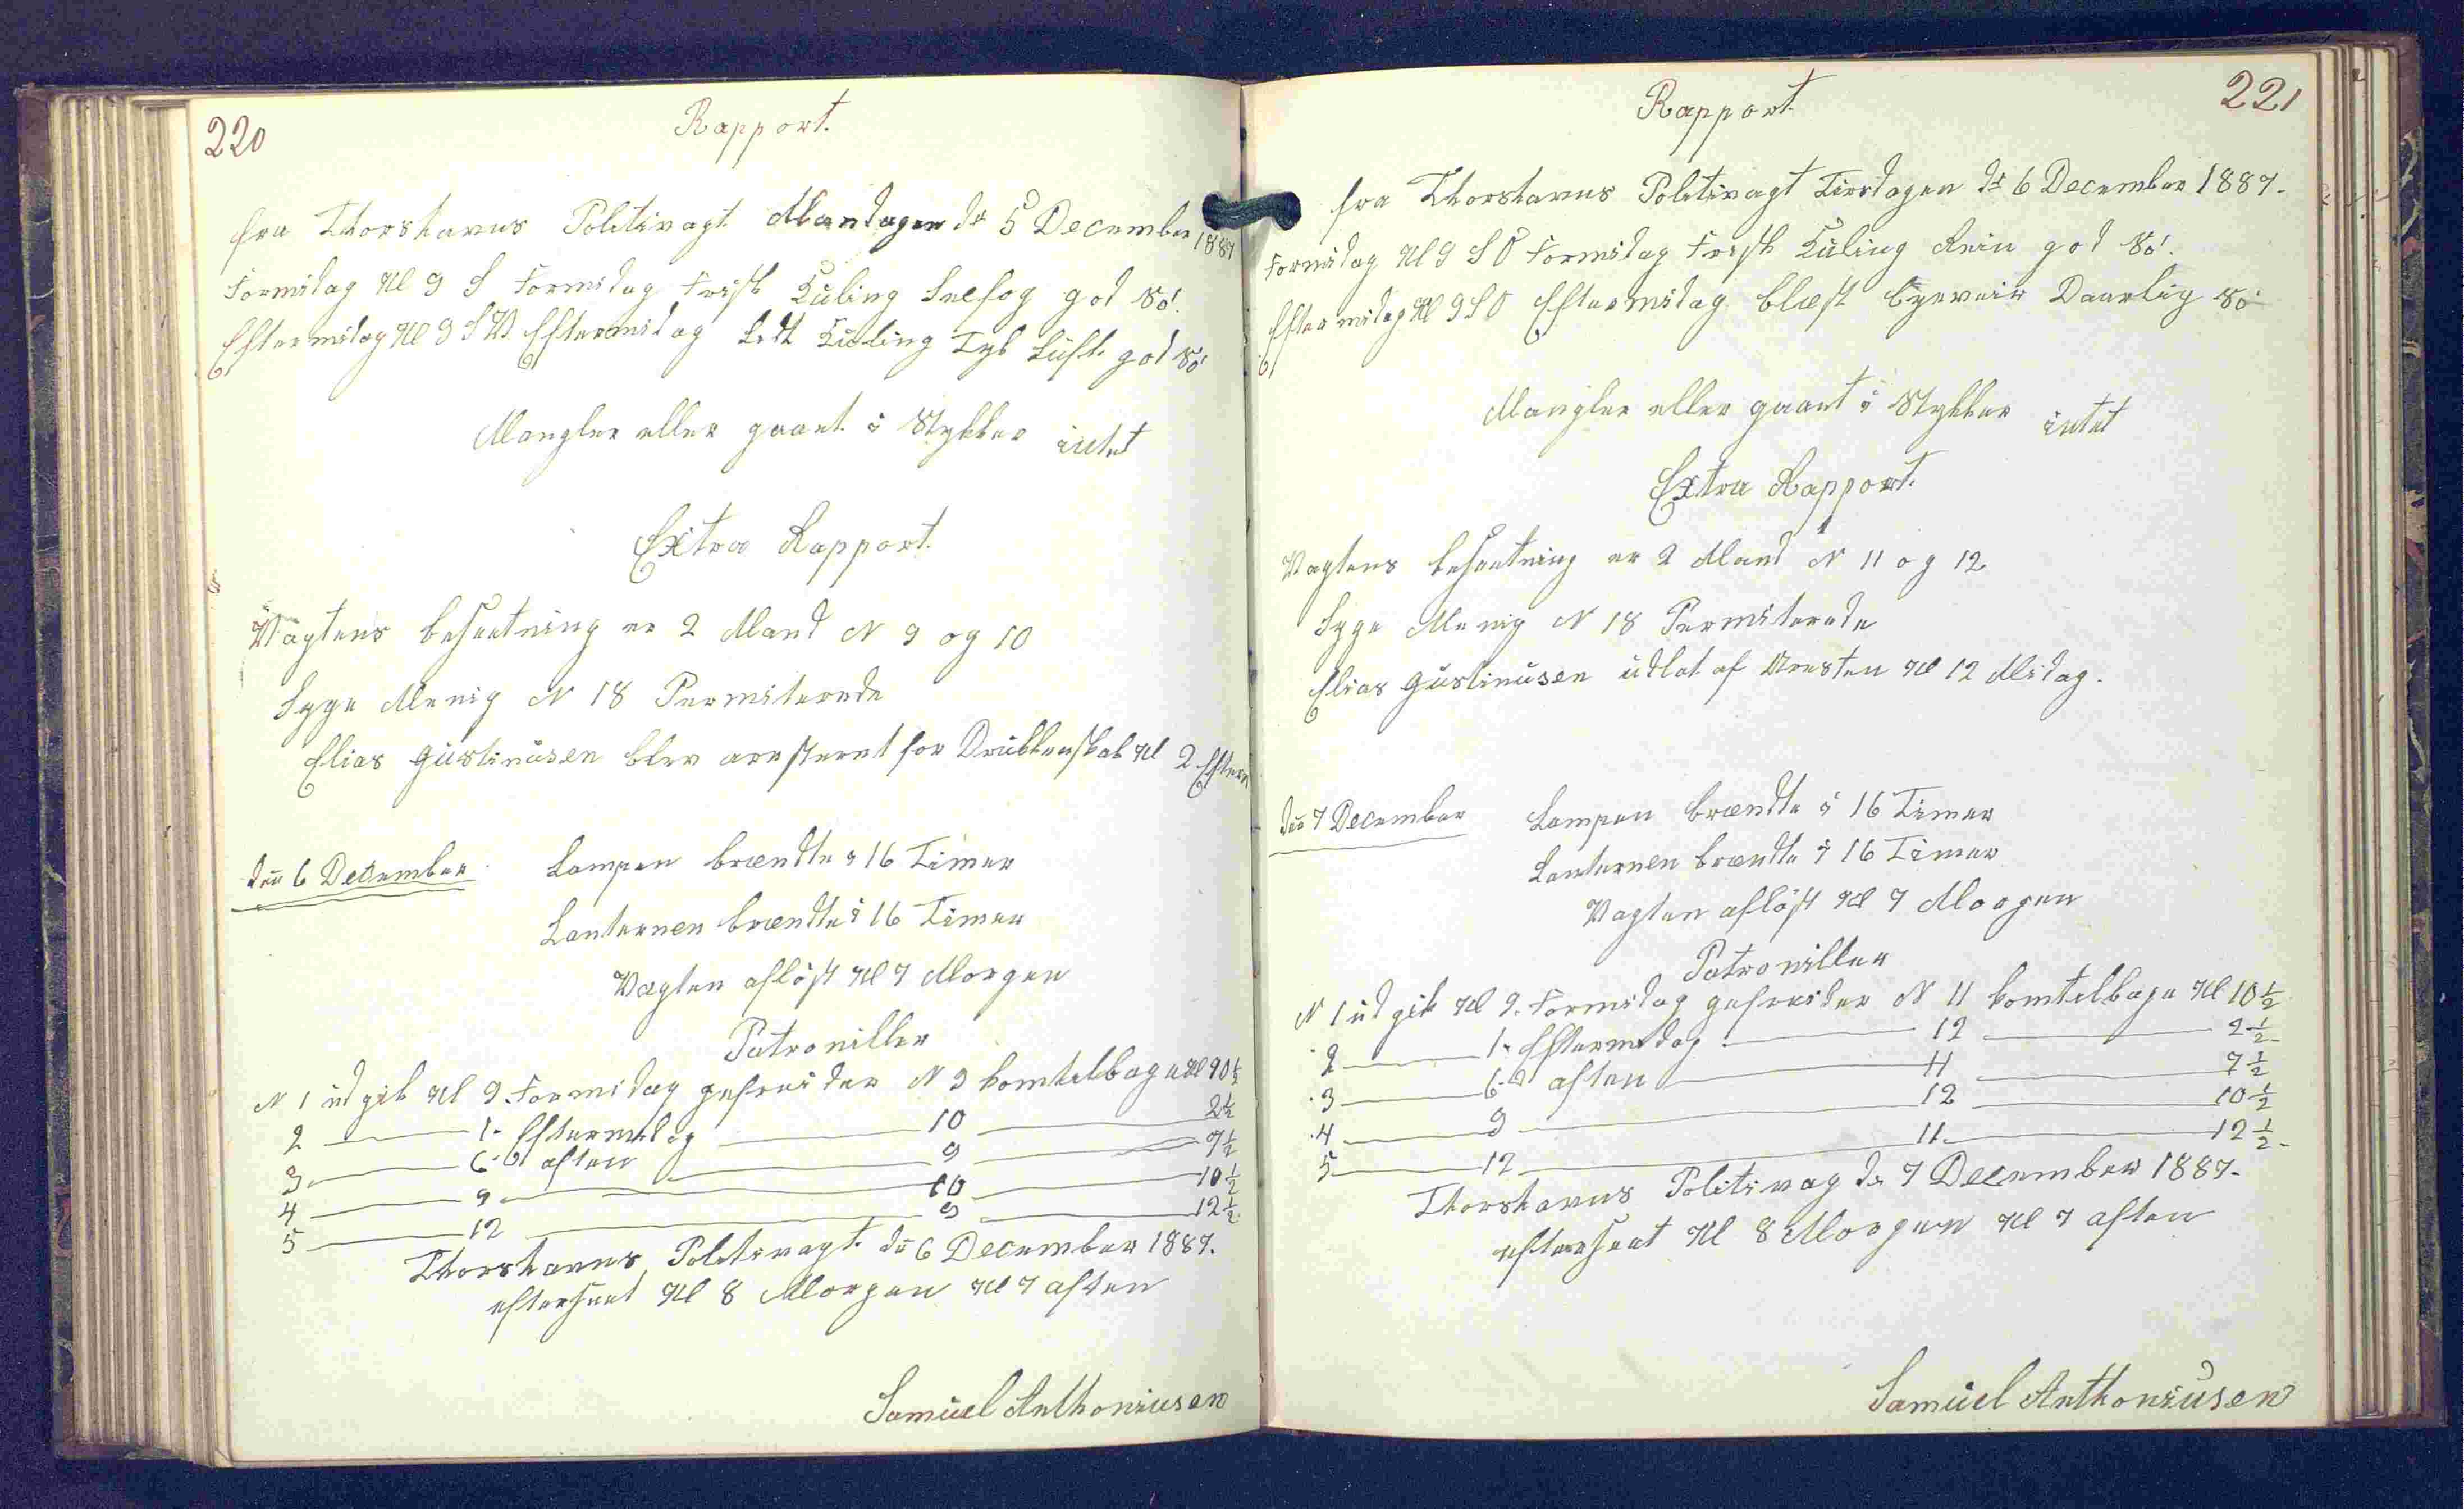 220
Rapport.
fra Thorshavns Politivagt Mandagen dn 5 December 1887
Formidag Kl 9 S Formidag Frisk Kuling Snefog god Sö.
Eftermidag Kl 9 S V. Eftermidag Let Kuling Tyk Luft. god Sö
Mangler eller gaaet i Stykker intet
Extra Rapport.
Vagtens besætning er 2 Mand N 9 og 10
Syge Menig N 18 Permiterede
Elias Gustinusen blev aresteret for Drukkenskab Kl 2 Efterm
den 6 December Lampen brændte i 16 Timer
Lanternen brændte i 16 Timer
Vagten aflöst Kl 7 Morgen
Patroniller
N 1 ud gik Kl 9. Formidag gefreider N 9 kom telbage Kl 10 1/2
2 1. Eftermidag 10 2 1/2
3 6. aften 9 7 1/2
4 9 10 10 1/2
5 12 9 12 1/2
Thorshavns Politivagt. dn 6 December 1887.
efterseet Kl 8 Morgen Kl 7 aften
Samuel Anthoniusen
221
Rapport
fra Thorshavns Politivagt Tirsdagen dn 6 December 1887.
Formidag Kl 9 S O Formidag Frisk Kuling Rein god Sö.
Efter midag Kl 9 S O Eftermidag blæst byeveir Daarlig Sö
Mangler eller gaaet i Stykker intet
Extra Rapport.
Vagtens besætning er 2 Mand N 11 og 12
Syge Menig N 18 Permiterede
Elias Gustinusen udlat af Aresten Kl 12 Midag.
den 7 December Lampen brændte i 16 Timer
Lanternen brændte i 16 Timer
Vagten aflöst Kl 7 Morgen
Patroniller
N 1 ud gik Kl 9. Formidag gefreider N 11 kom telbage Kl 10 1/2
2 1. Eftermidag 12 2 1/2
3 6. aften 11 7 1/2
4 9 12 10 1/2
5 12 11 12 1/2
Thorshavns Politivag dn 7 December 1887.
efterseet Kl 8 Morgen Kl 7 aften
Samuel Anthoniusen